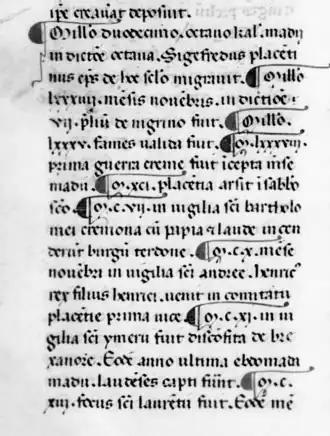 ipe creauat deposuit.
Millo duodecimo. octauo kal. madij
in dictoe octaua. Sigefredus placeti
nus eps de hoc sclo migrauit. Millo
lxxxiiij. mesis nouebris. in dictioe.
vij. pliu de nigrino fuit. Millo.
lxxxv. fames ualida fuit. M. lxxxviij.
prima guerra creme fuit icepta mse
madij. M. xci. placetia arsit i sabbo
sco. M. c. vij. in uigilia sci bartholo
mei cremona cu papia & laude in cen
derut burgu terdone. M. c. x. mese
nouebri in uigilia sci andree. henric9
rex filius henrici. uenit in comitatu
placetie prima uice. M. c. xj. in ui
gilia sci ymerij fuit discofita de bre
xanore. Eode anno ultima ebdomada
madij. laudeses capti fuut. M. c.
xiij. focus sci lauretij fuit. Eode me